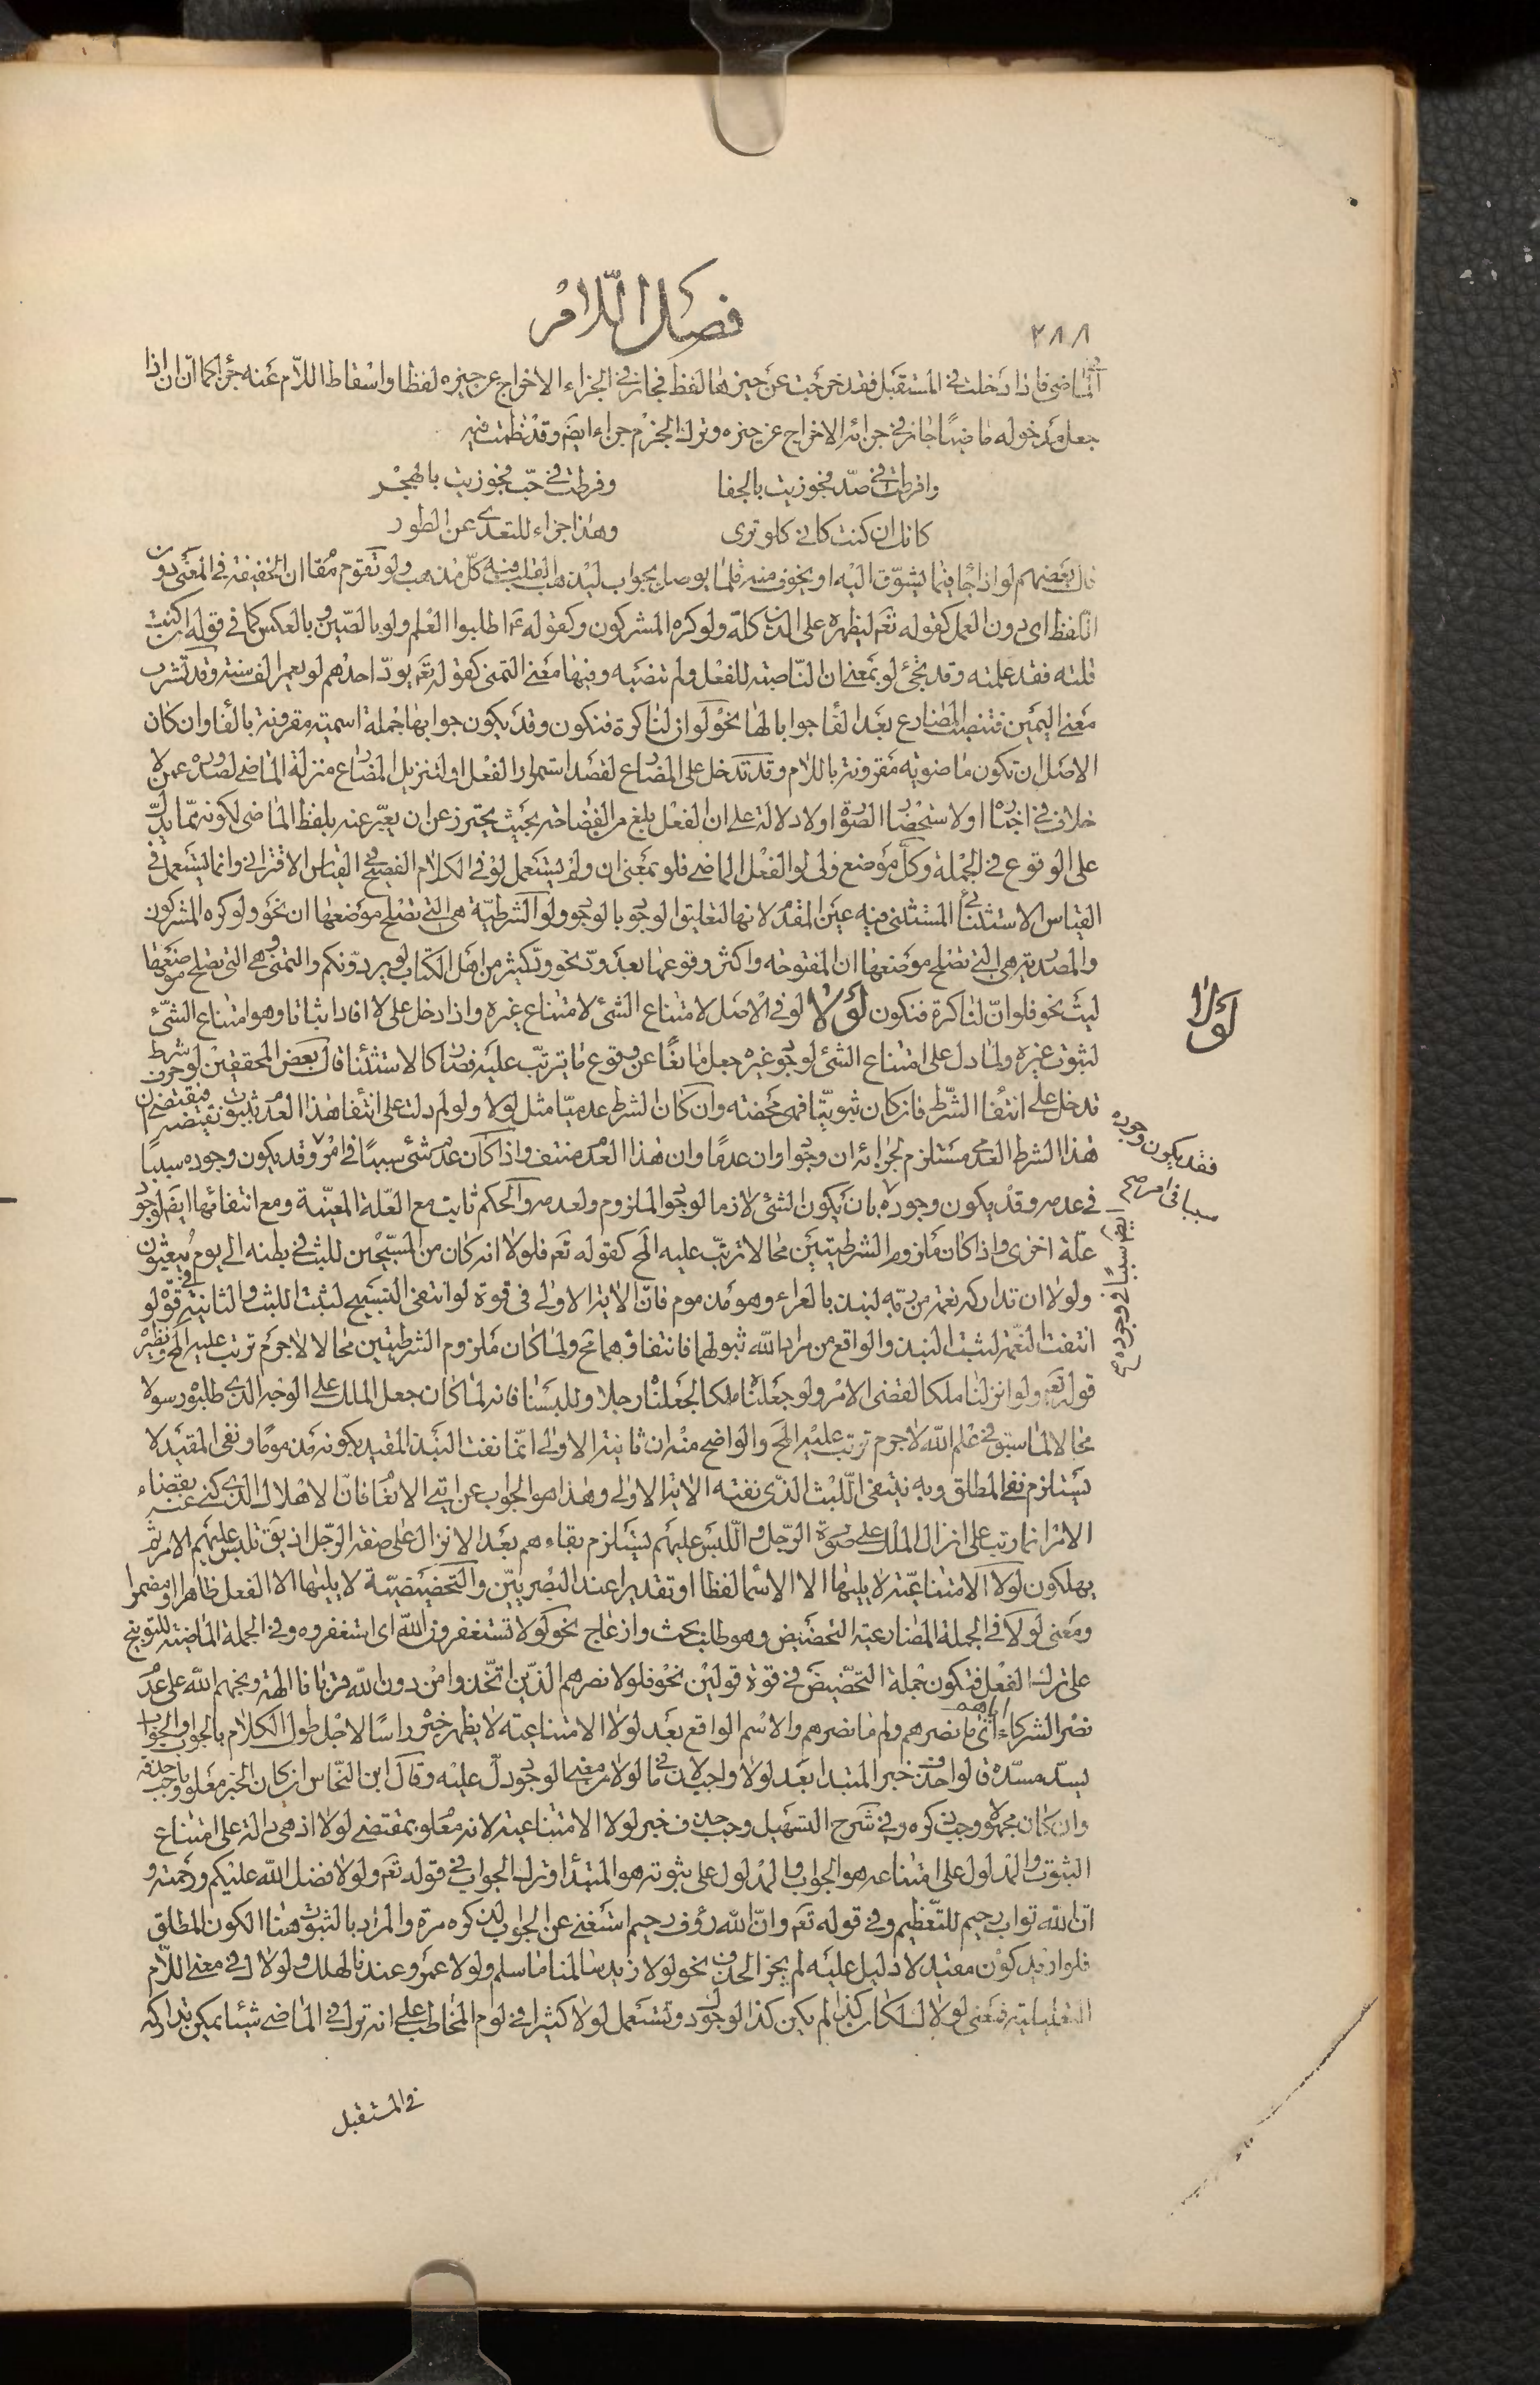 ٢٨٨
فصل اللام
في الماضي فاذا دخلت في المستقبل فقد خرجت عن حيزها لفظا فجاز في الجزاء الاخراج عن حيزه لفظا واسقاط اللام عنه جزا كما ان ان اذا
جعل مدخوله ماضيا جاز في جزائه الاخراج عن حيزه وترك الجزم جزاء ايض وقد نظمت فيه
وافرطت في صد فجوزيت بالجفا وفرطت في حب فجوزيت بالهجر
كانك ان كنت كاني كلو ترى وهذا جزاء للتعدي عن الطور
قال بعضهم لو اذا جا فيما يشوق اليه او يخوف منه قلما يوصل بجواب ليذهب القلب فيه كل مذهب ولو تقوم مقام ان الخفيفة في المعنى دون
اللفظ اى دون العمل كقوله تعم ليظهره على الدين كله ولو كره المشركون وكقوله عم اطلبوا العلم ولو بالصين وبالعكس كما في قوله ان كنت
قلته فقد علمته وقد يجئ لو بمعنى ان الناصبة للفعل ولم تنصبه وفيها معنى التمنى كقوله تعم يود احدهم لو يعمر الف سنة وقد تشرب
معنى اليمين فتنصب المضارع بعد الفا جوابا لها نحو لو ان لنا كرة فنكون وقد يكون جوابها جملة اسمية مقرونة بالفا وان كان
الاصل ان تكون ماضوية مقرونة باللام وقد تدخل على المضارع لقصد استمرار الفعل او لتنزيل المضارع منزلة الماضى لصدوره عمن لا
خلاف في اخباره او لاستحضار الصورة او لا دلالة على ان الفعل بلغ من الفضاحة بحيث يحترز عن ان يعبر عنه بلفظ الماضى لكونه مما يدل
على الوقوع في الجملة وكل موضع ولى لو الفعل الماضى فلو بمعنى ان ولم يستعمل لو في الكلام الفصيح في القياس الاقترانى وانما يستعمل في
القياس الاستثنائى المستثنى فيه عين المقدم لانها لتعليق الوجود بالوجود ولو الشرطية هى التى تصلح موضعها ان نحو ولو كره المشركون
والمصدرية هى التى تصلح موضعها ان المفتوحة واكثر وقوعها بعد ود نحو ود كثير من اهل الكتاب لو يردونكم والتمنى وهى التى تصلح موضعها
ليت نحو فلو ان لنا كرة فنكون لولا لو في الاصل لامتناع الشئ لامتناع غيره واذا دخل على لا افاد اثباتا وهو امتناع الشئ
لولا
لثبوت غيره ولما دل على امتناع الشئ لوجود غيره جعل مانعا عن وقوع ما يترتب عليه فصار كالاستثنا قال بعض المحققين لو حرف شرط
تدخل على انتفا الشرط فان كان ثبوتيا فهى محضة وان كان الشرط عدميا مثل لولا ولو لم دلت على انتفا هذا العدم بثبوت نقيضه فيقتضى ان
هذا الشرط العدمى مستلزم لجزائه ان وجودا وان عدما وان هذا العدم منتف واذا كان عدم شئ سببا في امر وقد يكون وجوده سببا
فقد يكون وجوده سببا في امر صح
في عدمه وقد يكون وجوده بان يكون الشئ لازما لوجود الملزوم ولعدمه والحكم ثابت مع العلة المعينة ومع انتفائها ايض لوجود
ايض سببا في وجوده صح
علة اخرى واذا كان ملزوم الشرطيتين محالا ترتب عليه المح كقوله تعم فلولا انه كان من المسبحين للبث في بطنه الى يوم يبعثون
ولولا ان تداركه نعمة من ربه لنبذ بالعراء وهو مذموم فان الاية الاولى في قوة لو انتفى التسبيح لثبت اللبث والثانية في قوة لو
انتفت النعمة لثبت النبذ والواقع من مراد الله ثبوتهما فانتفاؤهما مح ولما كان ملزوم الشرطيتين محالا لاجرم ترتب عليه المح ونظيره
قوله تعم ولو انزلنا ملكا لقضى الامر ولو جعلناه ملكا لجعلناه رجلا وللبسنا فانه لما كان جعل الملك على الوجه الذى طلبوه رسولا
محالا لما سبق في علم الله لاجرم ترتب عليه المح والواضح منه ان ثانية الاولى انما نفت النبذ المقيد بكونه مذموما ونفى المقيد لا
يستلزم نفى المطلق وبه ينتفى اللبث الذى نفته الاية الاولى وهذا هو الجواب عن ايتى الانعام فان الاهلاك الذى كنى عنه بقضاء
الامر انما رتب على انزال الملك على صورة الرجل واللبس عليهم يستلزم بقاءهم بعد الانزال على صفة الرجل اذ يقتلبس عليهم الامر ثم
يهلكون لولا الامتناعية لا يليها الا الاسم لفظا او تقديرا عند البصريين والتحضيضية لا يليها الا الفعل ظاهرا او مضمرا
ومعنى لولا في الجملة المضارعية التحضيض وهو طلب بحث وازعاج نحو لولا تستغفرون الله اى استغفروه وفي الجملة الماضية للتوبيخ
على ترك الفعل فتكون جملة التحضيض في قوة قولين نحو فلولا نصرهم الذين اتخذوا من دون الله قربانا الهة وبخهم الله على عدم
نصر الشركاء اياهم اى ما نصرهم ولم ما نصرهم والاسم الواقع بعد لولا الامتناعية لا يظهر خبره راسا لاجل طول الكلام بالجواب والجواب
يسد مسده قالوا حذف خبر المبتدا بعد لولا واجب لان في ما لولا من معنى الوجود دل عليه وقال ابن النحاس ان كان الخبر معلوما وجب حذفه
وان كان مجهولا وجب ذكره وفي شرح التسهيل وجب حذف خبر لولا الامتناعية لانه معلوم بمقتضى لولا اذ هى دالة على امتناع
الثبوت والمدلول على امتناعه هو الجواب والمدلول على ثبوته هو المبتدأ وترك الجواب في قوله تعم ولولا فضل الله عليكم ورحمته و
ان الله تواب رحيم للتعظيم وفي قوله تعم وان الله رؤف رحيم استغنى عن الجواب لذكره مرة والمراد بالثبوت هنا الكون المطلق
فلو اريد كون مقيد لا دليل عليه لم يجز الحذف نحو لولا زيد سالمنا ما سلم ولولا عمرو عندنا لهلك ولولا لك في معنى اللام
التعليلية فمعنى لولا لك لكان كذا لم يكن كذا لوجودك وتستعمل لولا كثيرا في لوم المخاطب على انه ترك في الماضى شيئا يمكن تداركه
في المستقبل